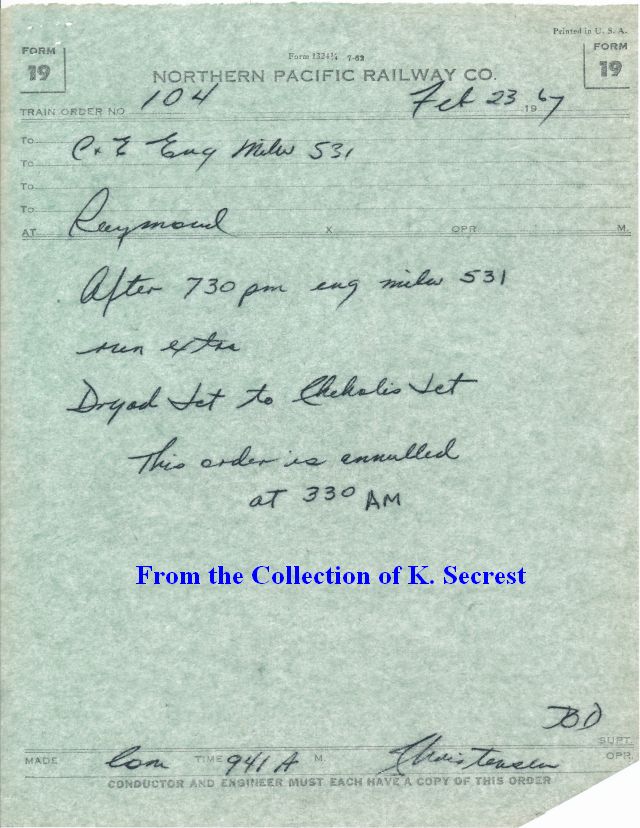 Printed in U. S. A.
FORM 19
Form 1324½ 7-62
FORM 19
NORTHERN PACIFIC RAILWAY CO.
TRAIN ORDER NO. 104 Feb 23 1967
To C & E Eng Milw 531
To
To
To
AT Raymond X OPR. M.
After 730 pm eng milw 531
run extra
Dryad Jct to Chehalis Jct
This order is annulled
at 330 AM
From the Collection of K. Secrest
BD
SUPT.
MADE Com TIME 941 A M. Christensen OPR.
CONDUCTOR AND ENGINEER MUST EACH HAVE A COPY OF THIS ORDER